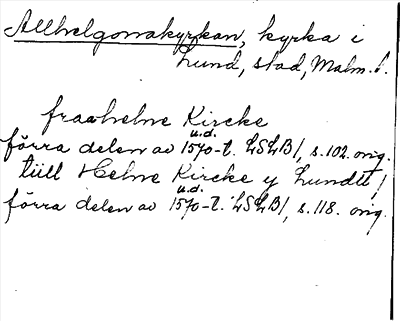 Allhelgonakyrkan, kyrka i
Lund, stad, Malm. l.
fraahelne Kircke
u.d.
förra delen av 1570-t. LSLB/, s. 102. orig.
tüll Helne Kircke y Lundtt/
u.d.
förra delen av 1570-t. LSLB/, s. 118. orig.